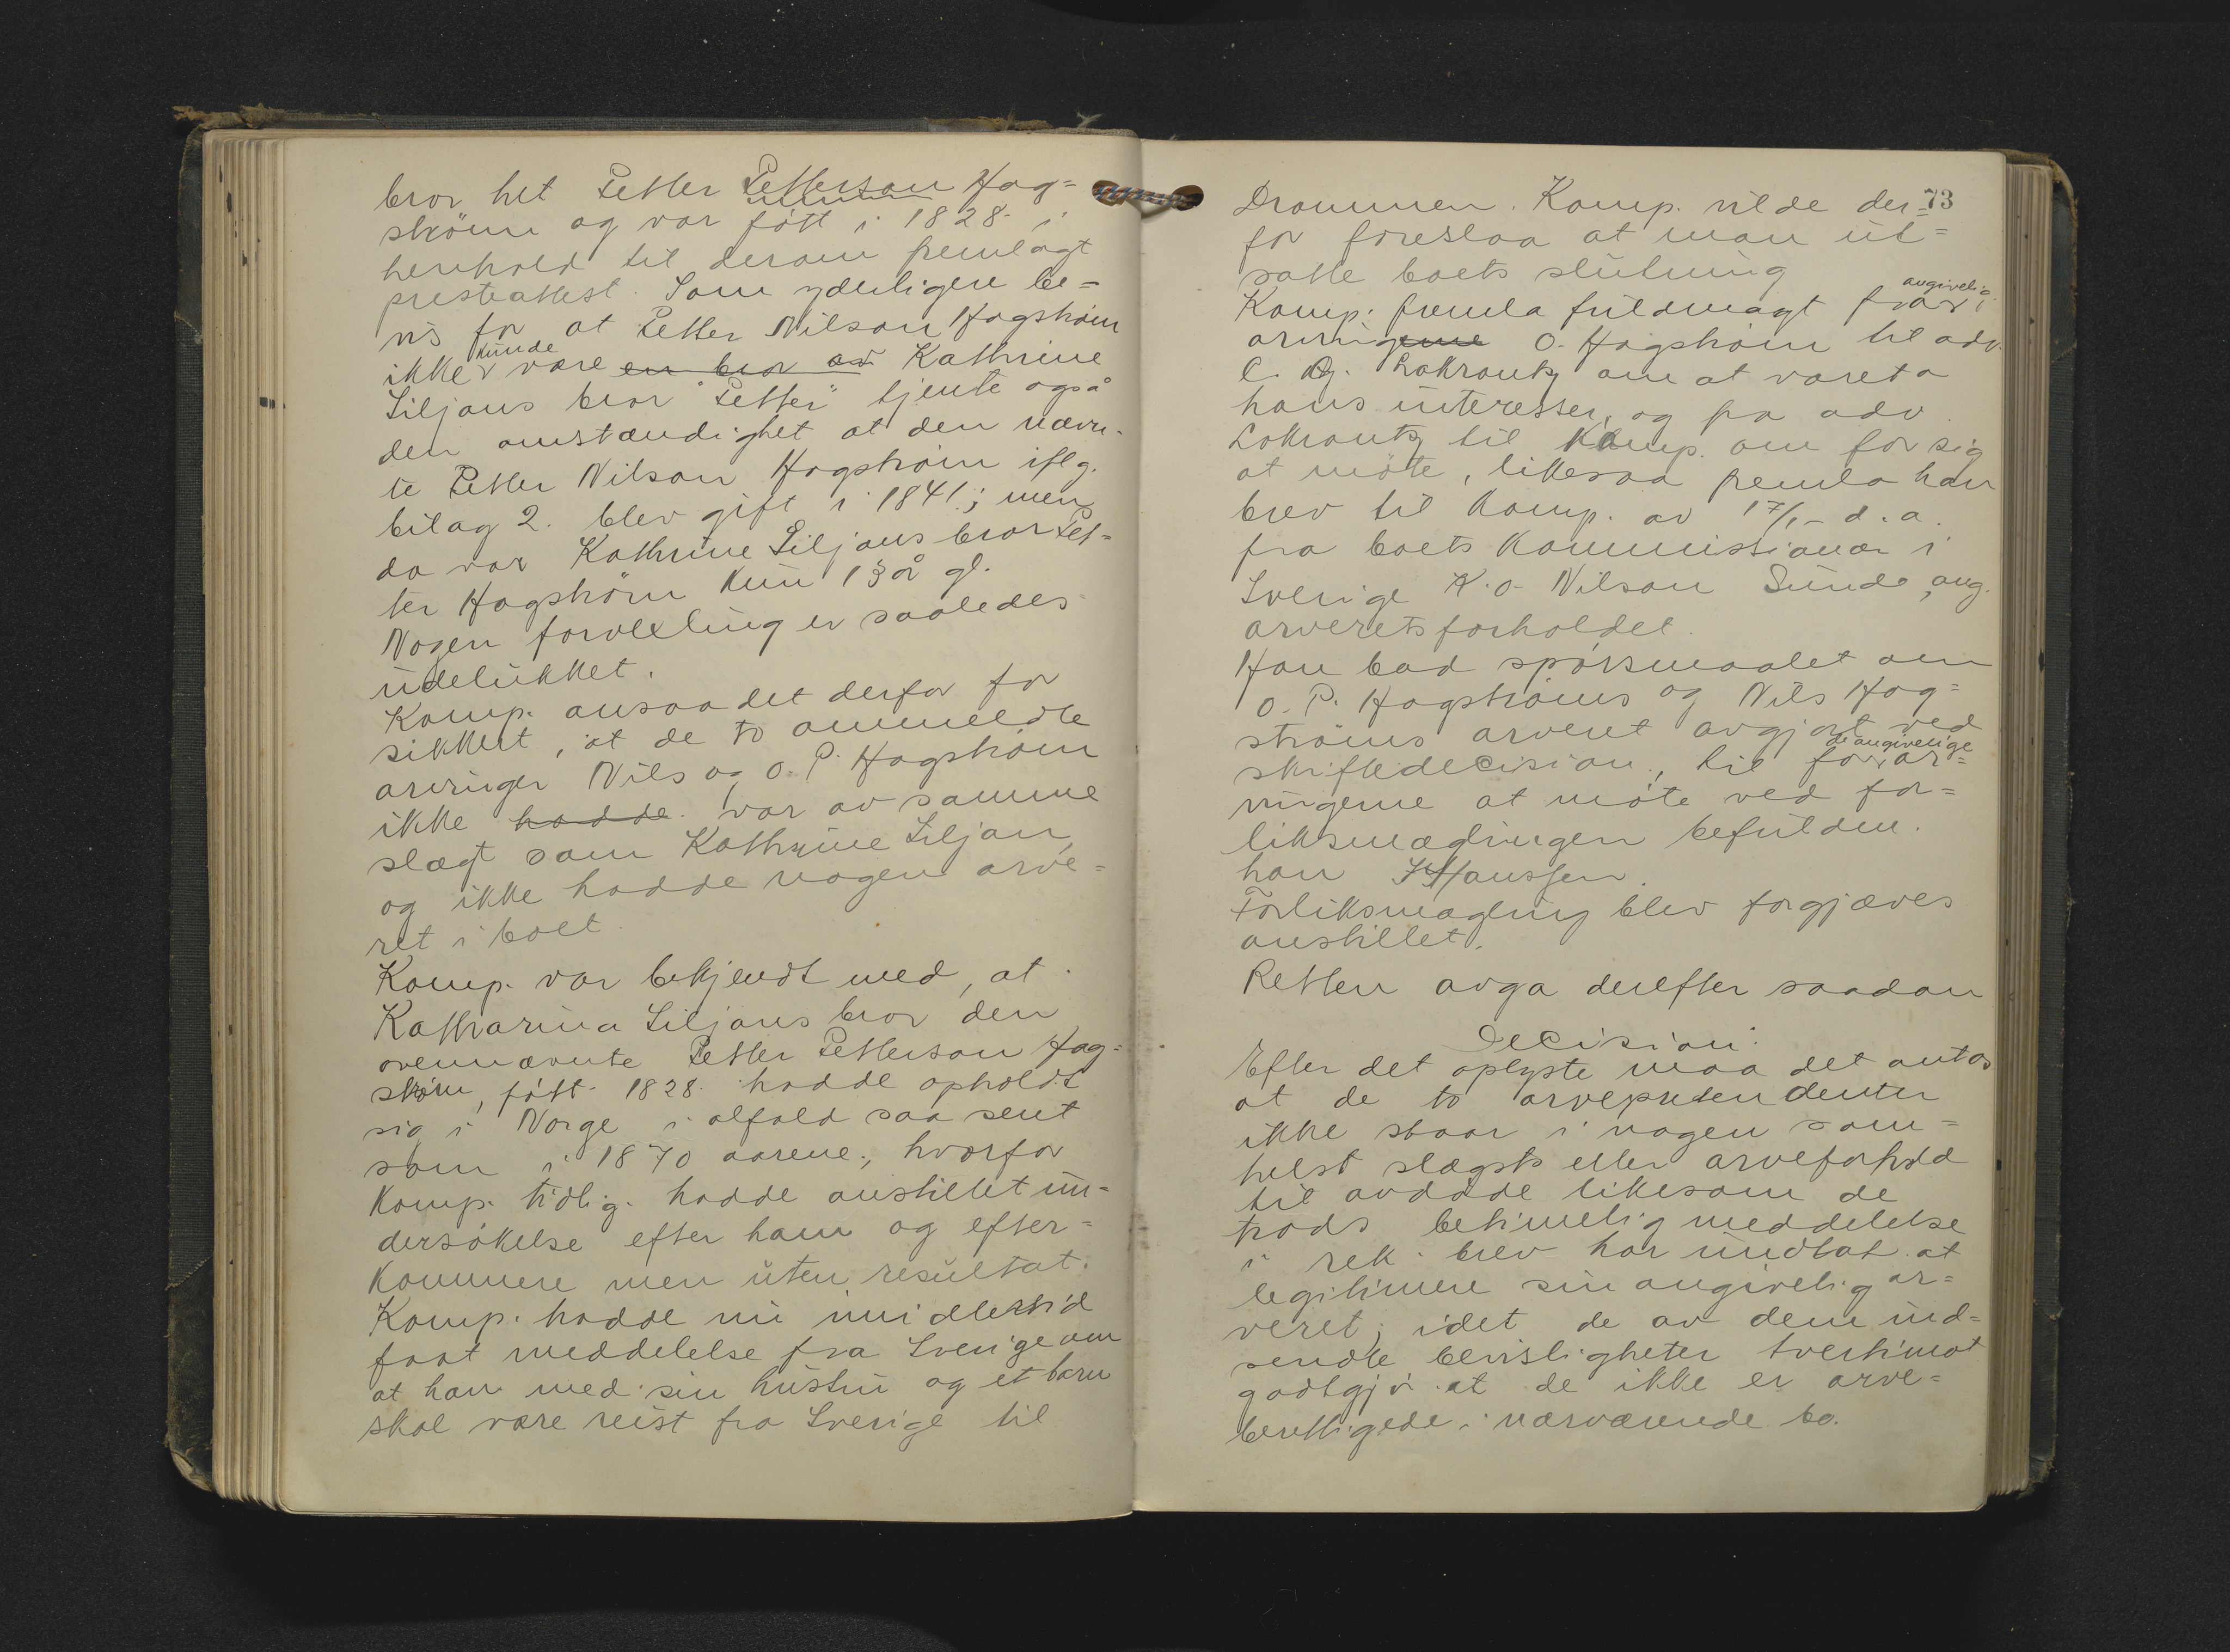 bror het Petter Petterson Hag=
ström og var født i 1828 i
henhold til derom fremlagt
presteattest. Som yderligere be=
vis for at Petter Nilson Hagstrøm
ikke kunde være en bror av Kathrine
Liljans bror "Petter" tjente også
den omstændighet at den nævn-
te Petter Nilson Hagstrøm iflg.
bilag 2. blev gift i 1841; men
da var Kathrine Liljans bror Pet=
ter Hagström kun 13 år gl.
Nogen forvexling er saaledes
udelukket.
Komp. ansaa det derfor for
sikkert, at de to anmeldte
arvinger Nils og O. P. Hagstrøm
ikke hadde var av samme
slægt som Kathrine Liljan,
og ikke hadde nogen arve=
ret i boet.
Komp. var bekjendt med, at
Katharina Liljans bror den
ovennævnte Petter Petterson Hag=
strøm, født 1828 hadde opholdt
sig i Norge i alfald saa sent
som i 1870 aarene, hvorfor
Komp. tidlig. hadde anstillet un=
dersøkelse efter ham og efter=
kommere men uten resultat.
Komp. hadde nu imidlertid
faat meddelelse fra Sverige om
at han med sin hustru og et barn
skal være reist fra Sverige til
73
Drammen. Komp. vilde der=
for foreslaa at man ut=
satte boets slutning
Komp. fremla fuldmagt fra angivelig
arvingerne O. Hagstrøm til adv.
C. G. Lokrantz om at vareta
hans interesser, og fra adv.
Lokrantz til Komp. om for sig
at møte, likesaa fremla han
brev til Komp. av 17/1- d. a.
fra boets kommissionær i
Sverige K. O. Nilson Sunde, ang.
arveretsforholdet.
Han bad spørsmaalet om
O. P. Hagstrøms og Nils Hag=
strøms arveret avgjort ved
skiftedecision, til for de angivelige ar=
vingerne at møte ved for=
liksmæglingen befuldm.
han Hanssen.
Forliksmægling blev forgjæves
anstillet.
Retten avga derefter saadan
Decision:
Efter det oplyste maa det antas
at de to arvepretendenter
ikke staar i nogen som=
helst slægts eller arveforhold
til avdøde likesom de
trods betimelig meddelelse
i rek. brev har undlat at
legitimere sin angivelig ar=
veret; idet de av dem ind=
sendte bevisligheter tvertimot
godtgjør at de ikke er arve=
berettigede i nærværende bo.